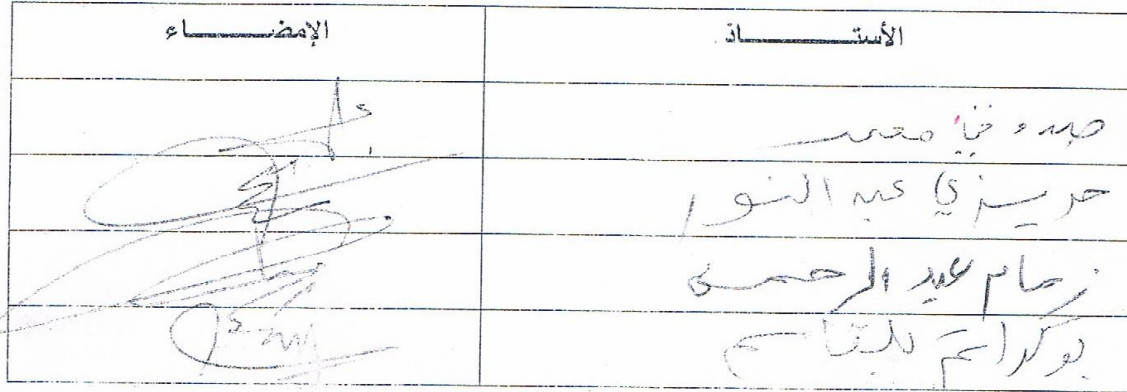 الأستاذ الإمضاء
صدوقي محمد
حريزي عبد النور
زمام عبد الرحمن
بوكراتم بلقاسم